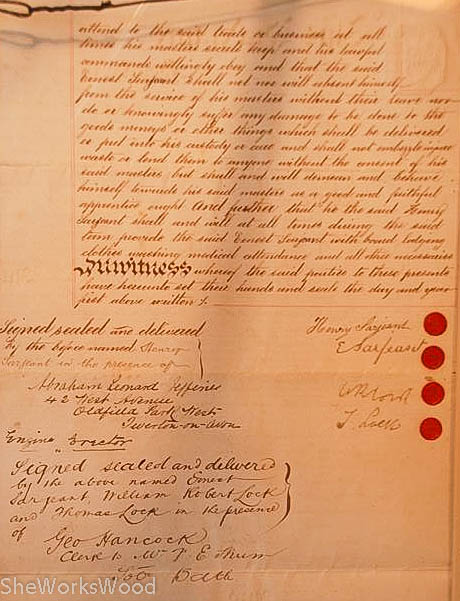 attend to the said trade or business at all
times his masters secrets keep and his lawful
commands willingly obey and that the said
Ernest Sargeant shall not nor will absent himself
from the service of his masters without their leave nor
do or knowingly suffer any damage to be done to the
goods moneys or other things which shall be delivered
or put into his custody or care and shall not embezzle injure
waste or lend them to anyone without the consent of his
said masters but shall and will demean and behave
himself towards his said masters as a good and faithful
apprentice ought And further that he the said Henry
Sargeant shall and will at all times during the said
term provide the said Ernest Sargeant with board lodging
clothes washing medical attendance and all other necessaries
In witness whereof the said parties to these presents
have hereunto set their hands and seals the day and year
first above written
Signed sealed and delivered
by the before named Henry
Sargeant in the presence of
Henry Sargeant
E Sargeant
Abraham Leonard Jefferies
42 West Avenue
Oldfield Park West
Twerton-on-Avon
Engine Erector
T. Lock
Signed sealed and delivered
by the above named Ernest
Sargeant, William Robert Lock
and Thomas Lock in the presence
of
Geo Hancock
Clerk to Mr
Bath
SheWorksWood